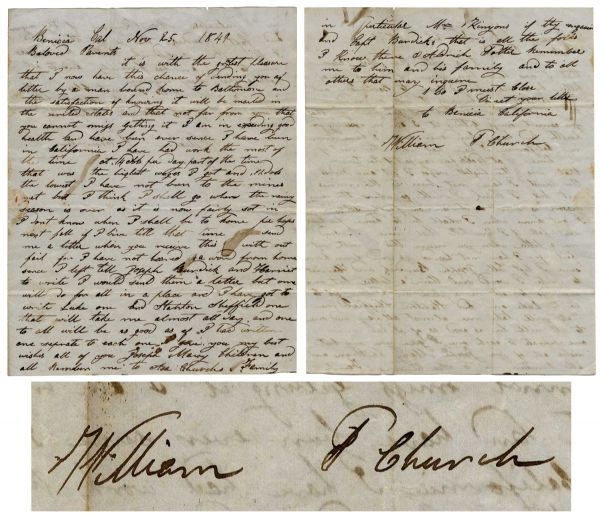 Benicia Cal Nov 25, 1849
Beloved Parents
it is with the greatest pleasure
that I now have this chance of sending you a
letter by a man bound home to Baltimore and
the satisfaction of knowing it will be mailed in
the united states and that not far from that
you cannot miss getting it I am in good
health and have been ever sence I have been
in California I have had work the most of
the time at per day part of the time
that was the highest wages I got and
the lowest I have not been to the mines
yet but I think I shall go when the rainy
season is over as it is now fairly sot in
I don't know when I shall be to home per haps
next fall if I live till that time send
me a letter when you receive this with out
fail for I have not heared a word from home
sence I left tell Joseph Burdick and Harriet
to write I would send them a letter but one
will do for all in a place and I have got to
write Luke one and Stanton Sheffield one
that will take me almost all day and one
to all will be as good as if I had written
one separate to each one I give you my best
wishes all of you Joseph Mary Children and
all Remdum me to Churchs Family
in particular Mr Kenyons if they inquire
and Capt Burdick that is all the folks
I Know there Potter Remember
me to him and his family and to all
others that may inquire
I must Close
Direct your letter
to Benicia California
William P Church
William P Church